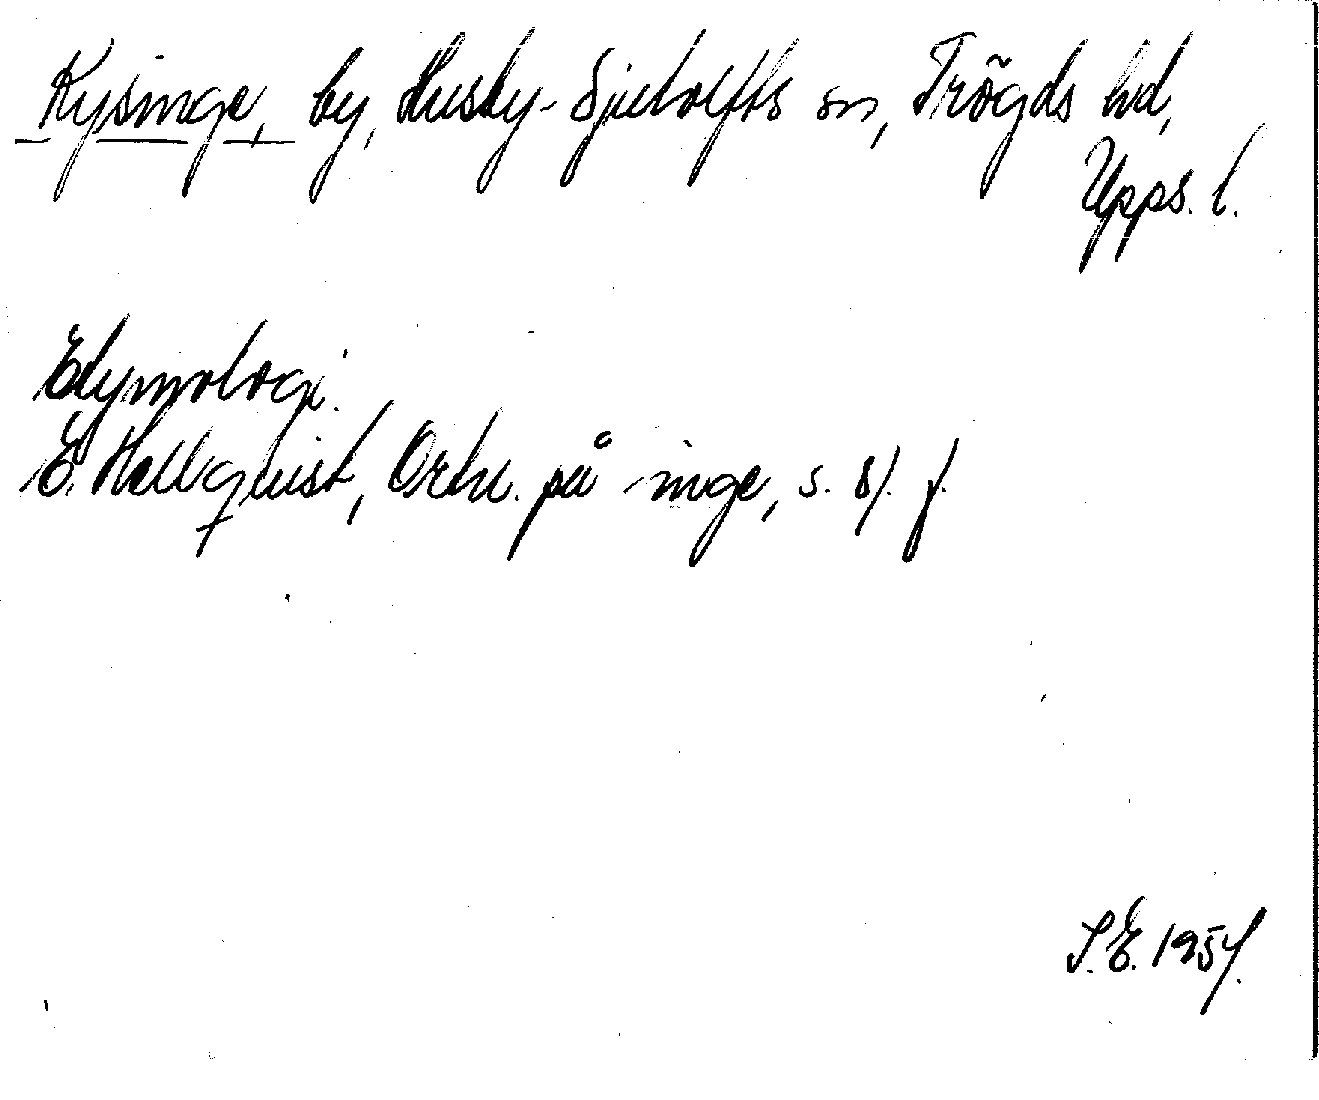 Kysinge, by, Husby-Sjutolfts sn, Trögds hd,
Upps. l.
Etymologi.
E. Hellquist, Ortn. på -inge, s. 81. f.
S.E. 1954.